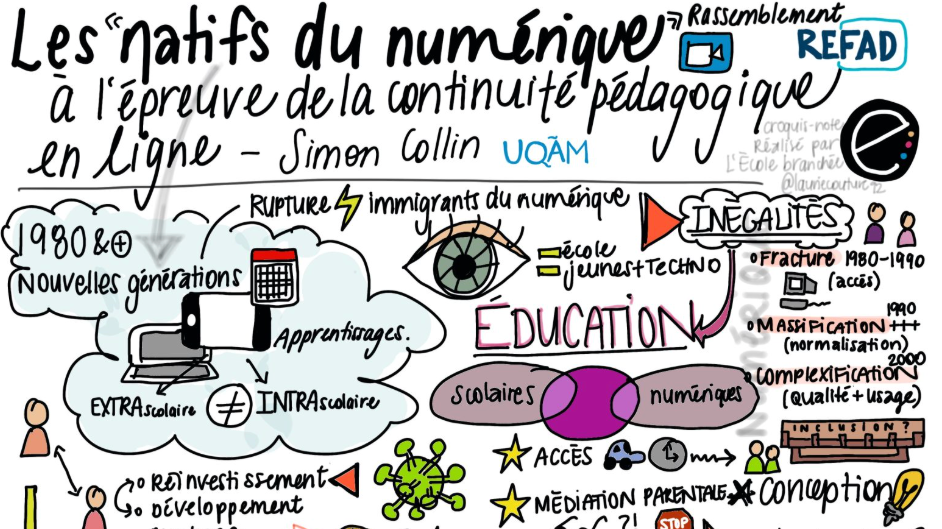 Les "natifs du numérique"
à l'épreuve de la continuité pédagogique
en ligne - Simon Collin UQÀM
Rassemblement
REFAD
croquis-note
Réalisé par
L'École branchée
@lauriecouture12
e
1980 & +
Nouvelles générations
Apprentissages.
EXTRAscolaire ≠ INTRAscolaire
RUPTURE immigrants du numérique
= école
= jeunes + TECHNO
ÉDUCATION
scolaires
numériques
INÉGALITÉS
NUMÉRIQ
Fracture 1980-1990
(accès)
1990
MASSIFICATION +++
(normalisation)
2000
COMPLEXIFICATION
(Qualité + usage)
INCLUSION?
ACCÈS
MÉDIATION PARENTALE
Conception
STOP
Réinvestissement
Développement